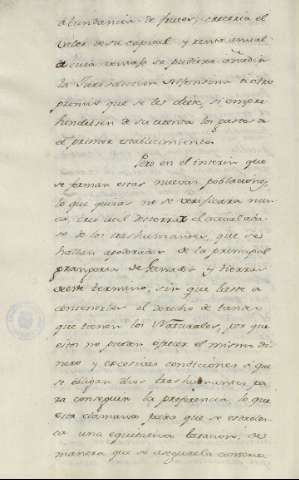 abundancia de frutos, creceria el
valor de su capital, y renta anual
de cuia remasa se pudiera añadir
la
premio que se les diere, si empre
hendiesen de su cuenta los gastos a
el primer establecimiento.
Pero en el interin que
se forman estas nuevas poblaciones,
lo que quizas no se verificara nun
ca, es el abuso
de los trashumantes, que se
hallan apoderados de la principal
grangeria de Ganados y tierras
de este termino, sin que baste a
contenerlos el derecho de tanteo
que tienen los Naturales, por que
estos no pueden ofrecer el mismo di
nero y excesivas condiciones a que
se obligan dhos trashumantes pa
ra conseguir la preferencia, lo que
esta clamando para que se establez
ca una equitativa tasacion, de
manera que se asegure la conserva